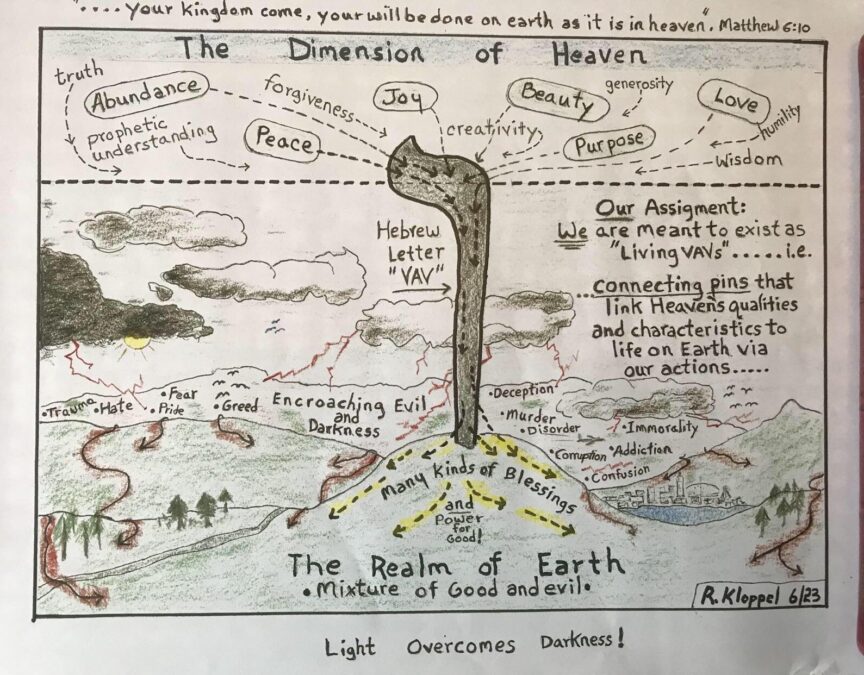 "....your kingdom come, your will be done on earth as it is in heaven". Matthew 6:10
The Dimension of Heaven
truth
Abundance
forgiveness
Joy
Beauty
generosity
Love
prophetic
understanding
Peace
creativity
Purpose
humility
Wisdom
Hebrew
Letter
"VAV"
Our Assigment:
We are meant to exist as
"Living VAVs".....i.e.
...connecting pins that
link Heaven's qualities
and characteristics to
life on Earth via
our actions.....
•Trauma
•Hate
•Fear
•Pride
•Greed
Encroaching Evil
and
Darkness
•Deception
•Murder
•Disorder
•Immorality
•Corruption
•Addiction
•Confusion
Many Kinds of Blessings
and
Power
for
Good!
The Realm of Earth
•Mixture of Good and evil•
R. Kloppel 6/23
Light Overcomes Darkness!